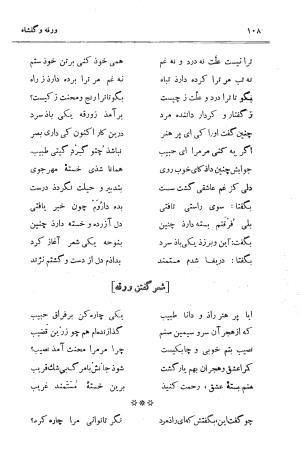 ۱۰۸ ورقه و گلشاه
ترا نیست علّت نه درد و نه غم همی خوذ کنی برتن خوذ ستم
نه تب مر ترا کرده دارذ تباه نه غم مر ترا برده دارذ ز راه
بگو تا ترا درد و علّت ز چیست بگو تا ترا رنج و محنت ز کیست؟
ز گفتار و کردار داننده مرد برآمذ ز ورقه یکی باذ سرد
چنین گفت اورا کی ای پر هنر درین کار اکنون کی داری بصر
اگر به کنی مرمرا ای حبیب نباشذ چنو گیرد گیتی طبیب
جوابش چنین داذ کای خوب روی همانا شذی خستهٔ مهرجوی
دلی کز غم عاشقی گشت سست بتدبیر و حیلت نگردذ درست
بگفتا: سوی راستی تافتی بده داروم چون خبر یافتی
بلی فرقتم بسته دارذ چنین دل آزرده و خسته دارذ چنین
بگفت: این و برزد یکی باذ سرد بنوحه یکی شعر آغاز کرد
بگفتا: دریغا شدم مستمند بداذم دل از دست و گشتم نژند
[شعر گفتن ورقه]
ایا پر هنر راذ و دانا طبیب یکی چاره کن بر فراق حبیب
از هجر آن سرو سیمین صنم گدازنده ام هم چو زرّین قضیب
نصیب بتم خوبی و چابکیست چرا مرمرا محنت آمذ نصیب؟
کمراعشق و هجران بهم یار گشت شوذ جانش بامرگ بی شک قریب
منم بستهٔ عشق، رحمت کنید برین خستهٔ مستمند غریب
***
چو گفت این، بگفتش که ای راذمرد نگر تا توانی مرا چاره کرد؟